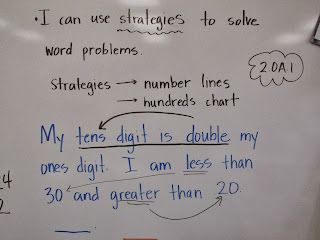 • I can use strategies to solve
word problems.
2.OA.1
Strategies → number lines
→ hundreds chart
My tens digit is double my
ones digit. I am less than
30 and greater than 20.